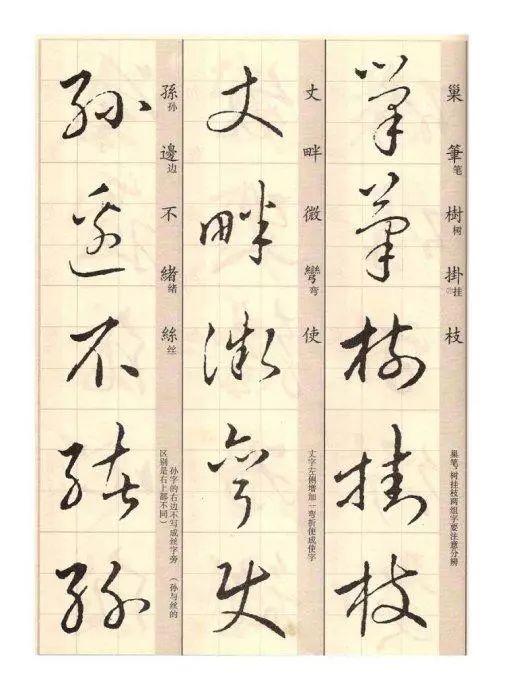 巢 筆笔 樹树 掛挂 枝
巢笔、树挂枝两组字要注意分辨
巢筆樹掛枝
丈 畔 微 彎弯 使
丈字左侧增加一弯折便成使字
丈畔微彎使
孫孙 邊边 不 緒绪 絲丝
孙字的右边不写成丝字旁（孙与丝的
区别是右上部不同）
孫邊不緒絲